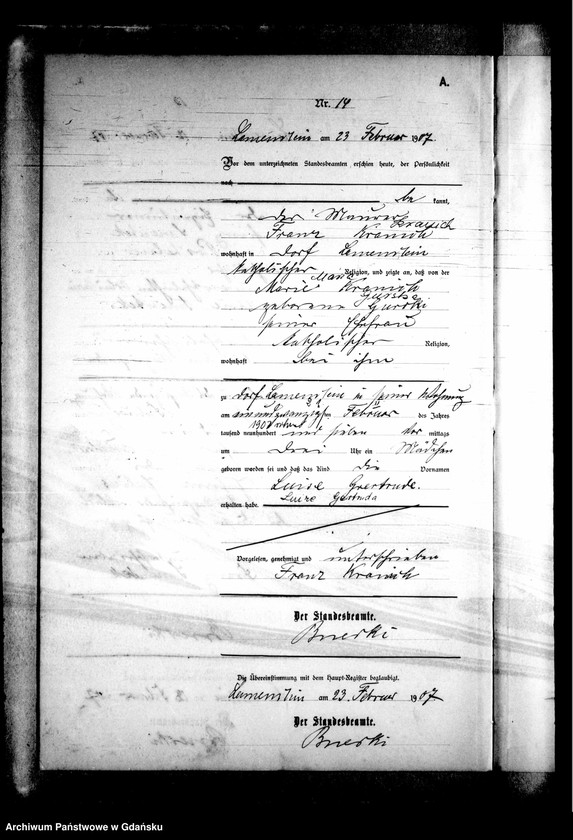 A.
Nr. 14
Lamenstein am 23 Februar 1907.
Vor dem unterzeichneten Standesbeamten erschien heute, der Persönlichkeit
nach
be kannt,
der Maurer
Franz Kranich
wohnhaft in Dorf Lamenstein
katholischer Religion, und zeigte an, daß von der
Marie Kranich
geborene Gurski
seiner Ehefrau
katholischer Religion,
wohnhaft bei ihm
zu Dorf Lamenstein in seiner Wohnung
am einundzwanzigsten Februar des Jahres
tausend neunhundert und sieben Vor mittags
um drei Uhr ein Mädchen
geboren worden sei und daß das Kind die Vornamen
Luise Gertrude.
Luize Gertruda
erhalten habe.
Vorgelesen, genehmigt und unterschrieben
Franz Kranich
Der Standesbeamte.
Die Übereinstimmung mit dem Haupt-Register beglaubigt.
Lamenstein am 23. Februar 1907
Der Standesbeamte.
Archiwum Państwowe w Gdańsku